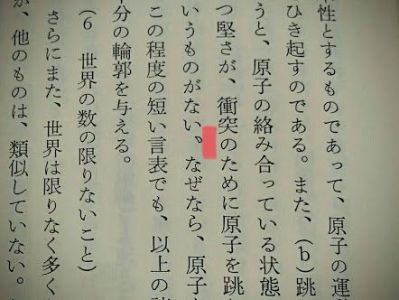 性とするものであって、原子の運
ひき起すのである。また、(b)跳
うと、原子の絡み合っている状態
つ堅さが、衝突のために原子を跳
いうものがない。なぜなら、原子
この程度の短い言表でも、以上の
十分の輪郭を与える。
(6 世界の数の限りないこと)
さらにまた、世界は限りなく多く
が、他のものは、類似していない。